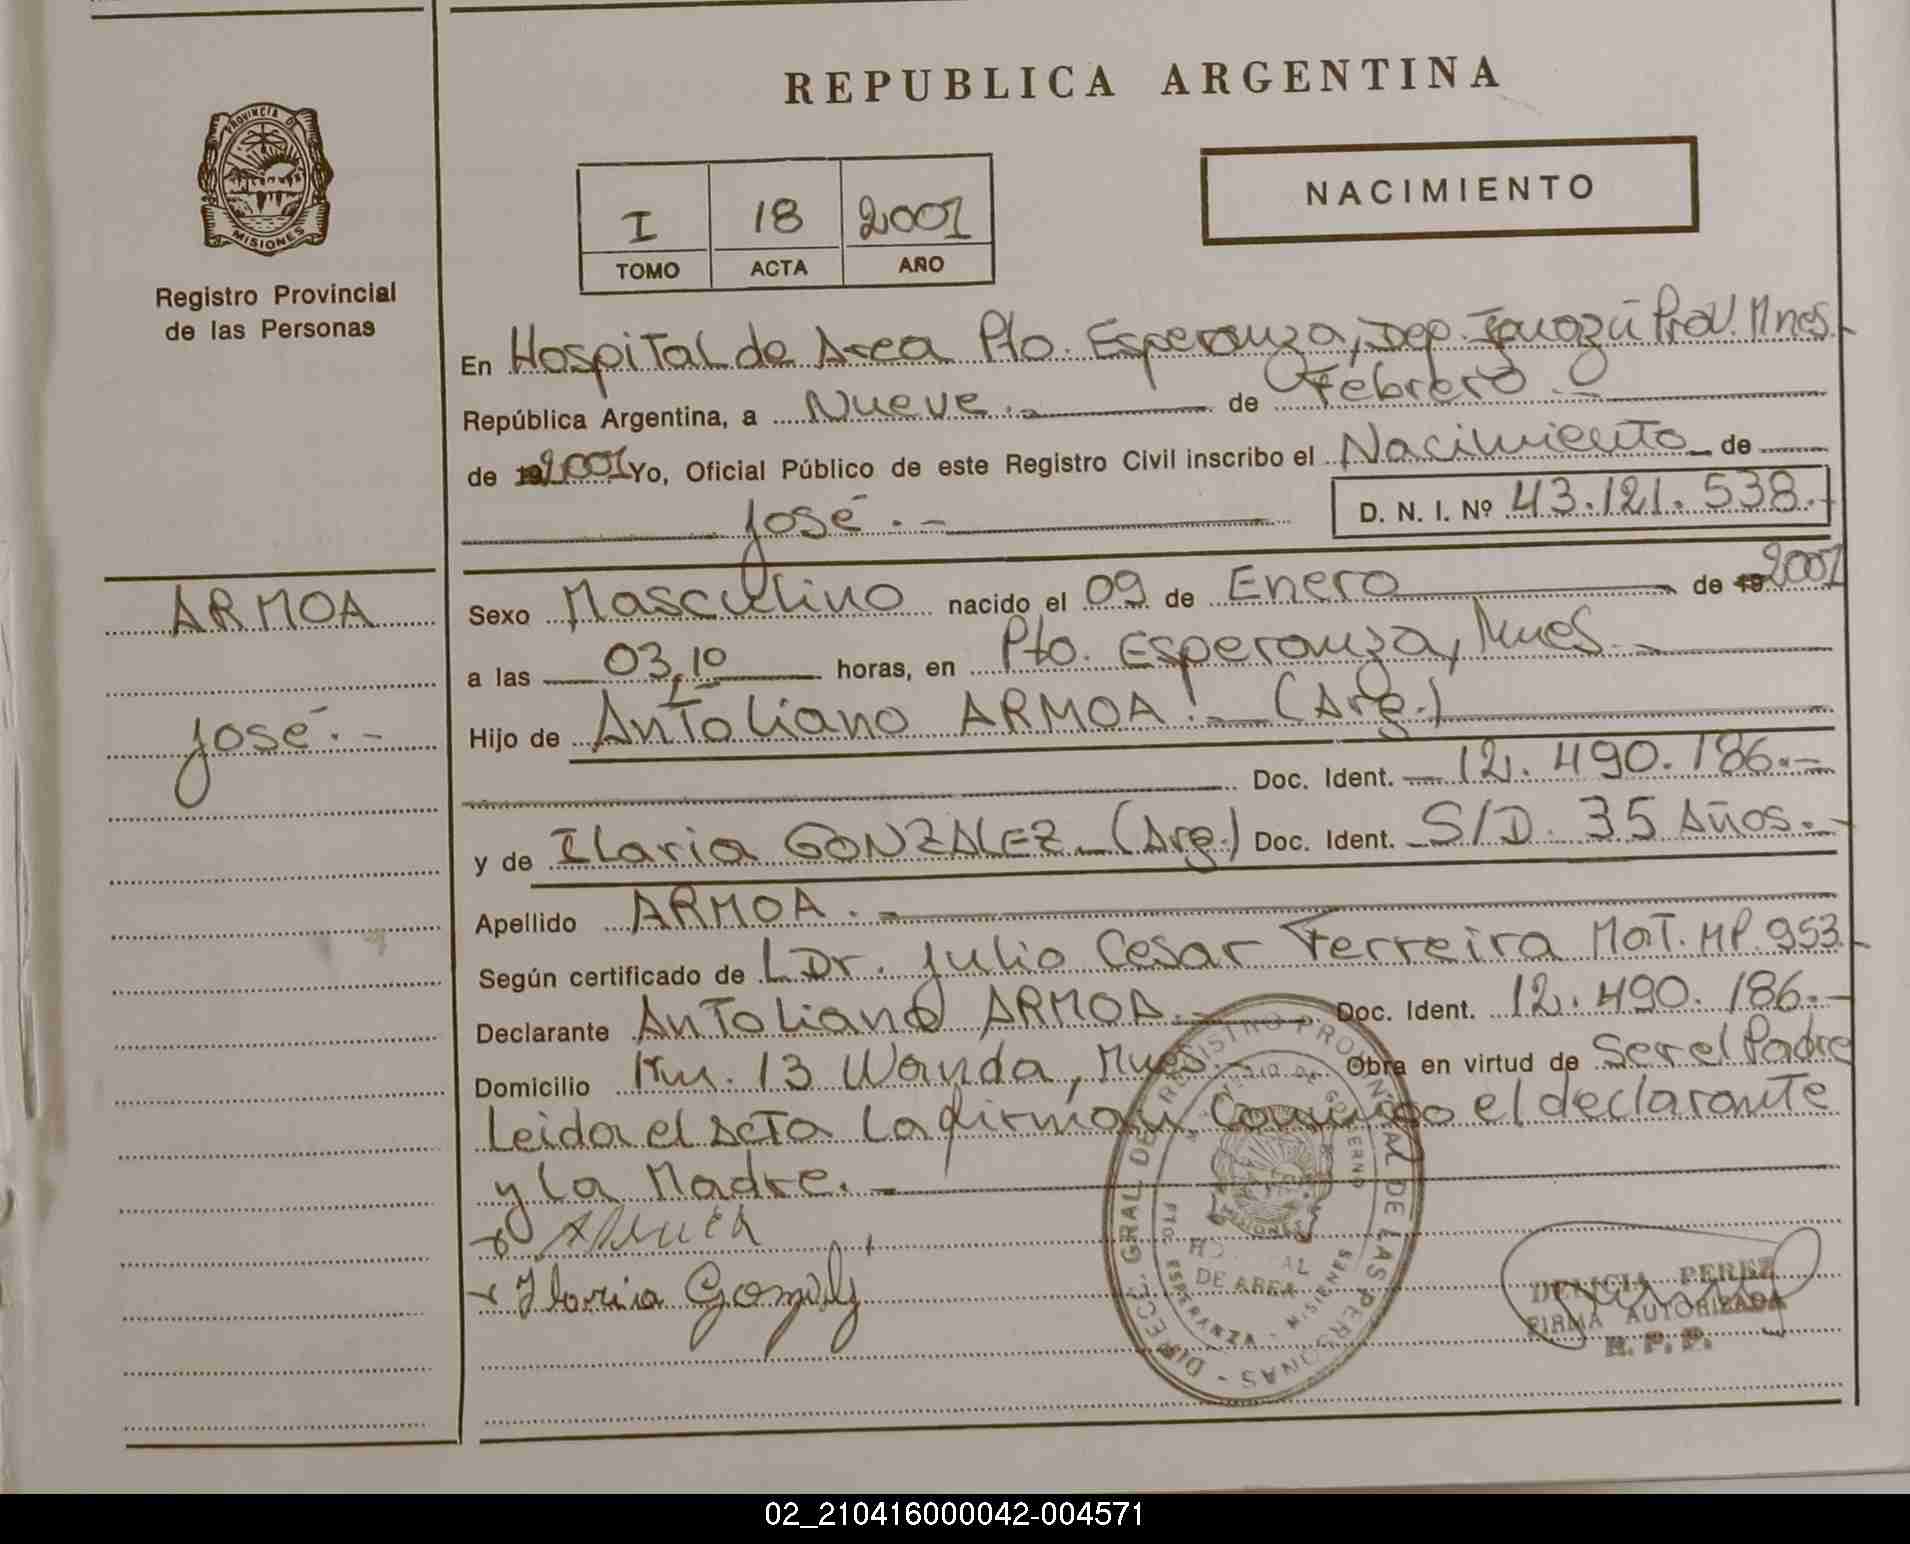 REPUBLICA ARGENTINA
PROVINCIA D
MISIONES
Registro Provincial
de las Personas
NACIMIENTO
I 18 2001
TOMO ACTA AÑO
En Hospital de Area Pto. Esperanza, Dep. Iguazú Prov. Mnes.-
República Argentina, a Nueve.- de Febrero.-
de 19 2001 Yo, Oficial Público de este Registro Civil inscribo el Nacimiento de
José.- D. N. I. Nº 43.121.538.-
ARMOA
José.-
Sexo Masculino nacido el 09 de Enero de 19 2001
a las 03,10 horas, en Pto. Esperanza, Mnes.-
Hijo de Antoliano ARMOA.- (Arg.)
Doc. Ident. 12.490.186.-
y de Ilaria GONZALEZ (Arg.) Doc. Ident. S/D. 35 Años.-
Apellido ARMOA.-
Según certificado de Dr. Julio Cesar Ferreira Mat. MP. 953.-
Declarante Antoliano ARMOA.- Doc. Ident. 12.490.186.-
Domicilio Km. 13 Wanda, Mnes.- Obra en virtud de Ser el Padre
Leida el Acta La firman Conmigo el declarante
y La Madre.-
Ilaria Gonzalez
DIRECC. GRAL DE REGISTRO PROVINCIAL DE LAS PERSONAS -
DE GOBIERNO
MISIONES
HOSPITAL
DE AREA
PTO. ESPERANZA - MISIONES
DELICIA PEREZ
FIRMA AUTORIZADA
R. P. P.
02_210416000042-004571